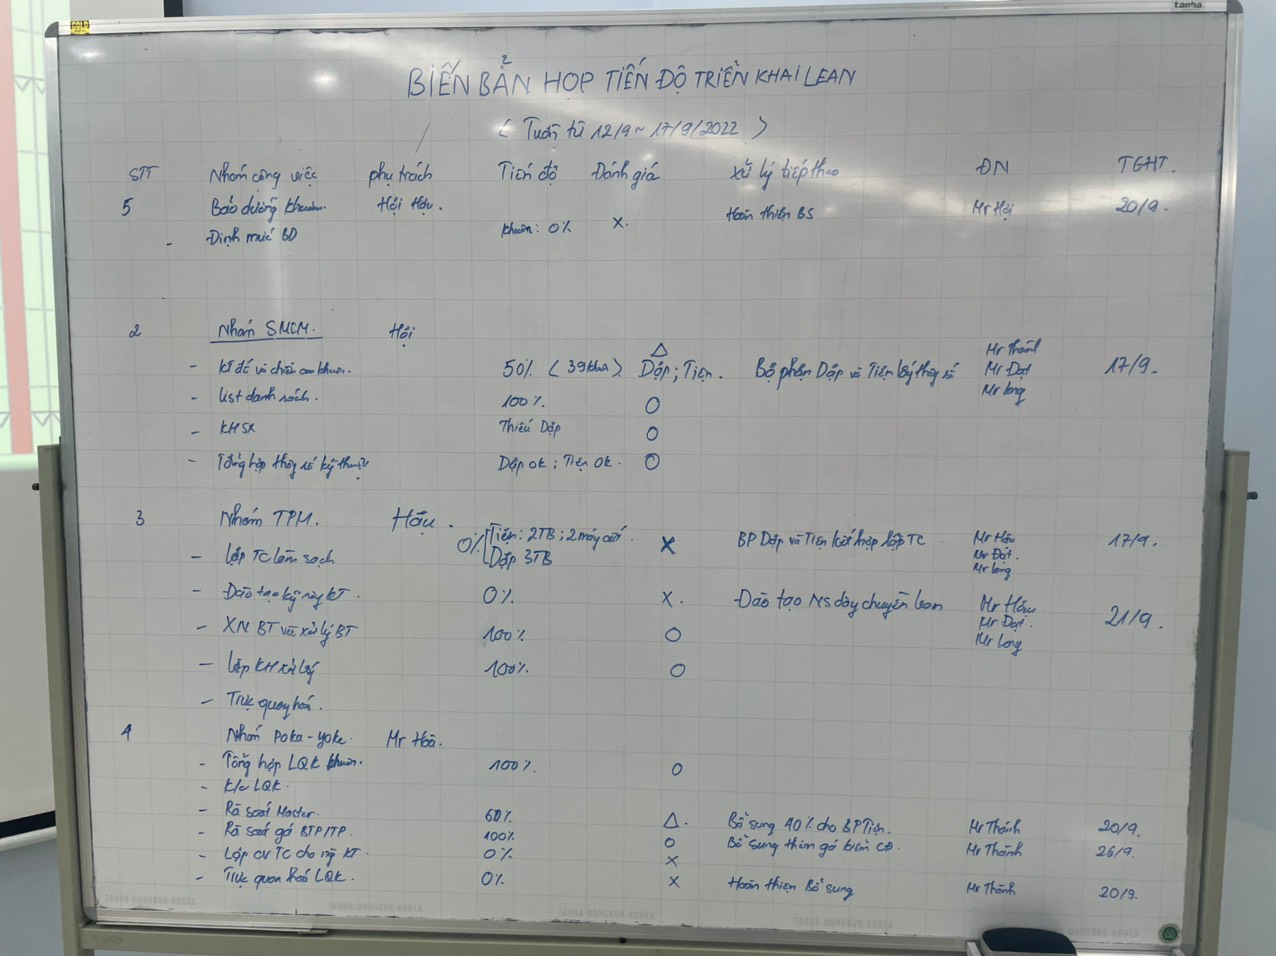 tanha
BIÊN BẢN HỌP TIẾN ĐỘ TRIỂN KHAI LEAN
( Tuần từ 12/9 ~ 17/9/2022 )
STT Nhóm công việc phụ trách Tiến độ Đánh giá xử lý tiếp theo ĐN TGHT.
5 Bảo dưỡng khuôn. Hội Hậu. Hoàn thiện BS Mr Hội 20/9.
- Định mức BD khuôn: 0% x.
2 Nhóm SMCM. Hội
- kẻ đế và chiều cao khuôn. 50% (39khuôn) △ Dập; Tiện. Bộ phận Dập và Tiện lấy thông số Mr Thành Mr Đạt Mr Long 17/9.
- List danh sách. 100%. O
- KHSX Thiếu Dập O
- Tổng hợp thông số kỹ thuật Dập ok; Tiện ok. O
3 Nhóm TPM. Hậu.
- Lập TC làm sạch 0% Tiện: 2TB; 2 máy cắt. Dập 3TB x BP Dập và Tiện kết hợp lập TC Mr Hậu Mr Đạt. Mr Long 17/9.
- Đào tạo kỹ năng KT. 0% x. Đào tạo NS dây chuyền lean Mr Hậu Mr Đạt. Mr Long 21/9.
- XN BT và xử lý BT 100% O
- Lập KH xử lý 100% O
- Trực quan hoá.
4 Nhóm Poka-yoke. Mr Hoà.
- Tổng hợp LQK khuôn. 100%. O
- K/c LQK.
- Rà soát Master. 60% △. Bổ sung 40% cho BP Tiện. Mr Thành 20/9.
- Rà soát gá BTP/TP. 100% O Bổ sung thêm gá kiểm CĐ. Mr Thành 26/9.
- Lập CV TC cho KT. 0% x
- Trực quan hoá LQK. 0% x Hoàn thiện Bổ sung Mr Thành 20/9.
TANHA-DONGBUR-KOREA